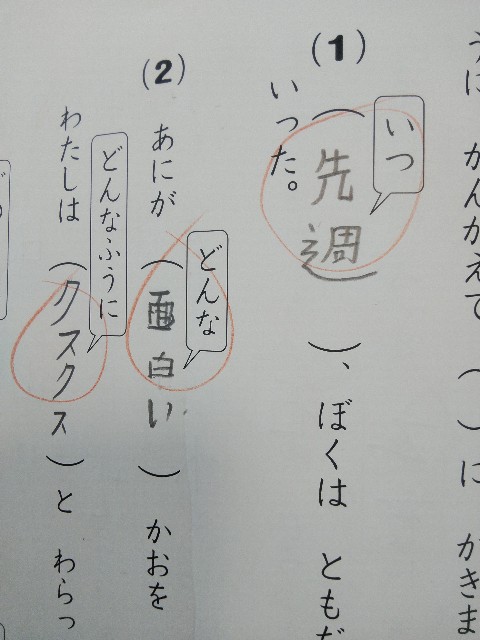 うに かんがえて （ ）に かきま
(1)
いつ
（先週）、ぼくは ともだ
いった。
(2)
どんな
あにが （面白い） かおを
どんなふうに
わたしは （クスクス）と わらっ